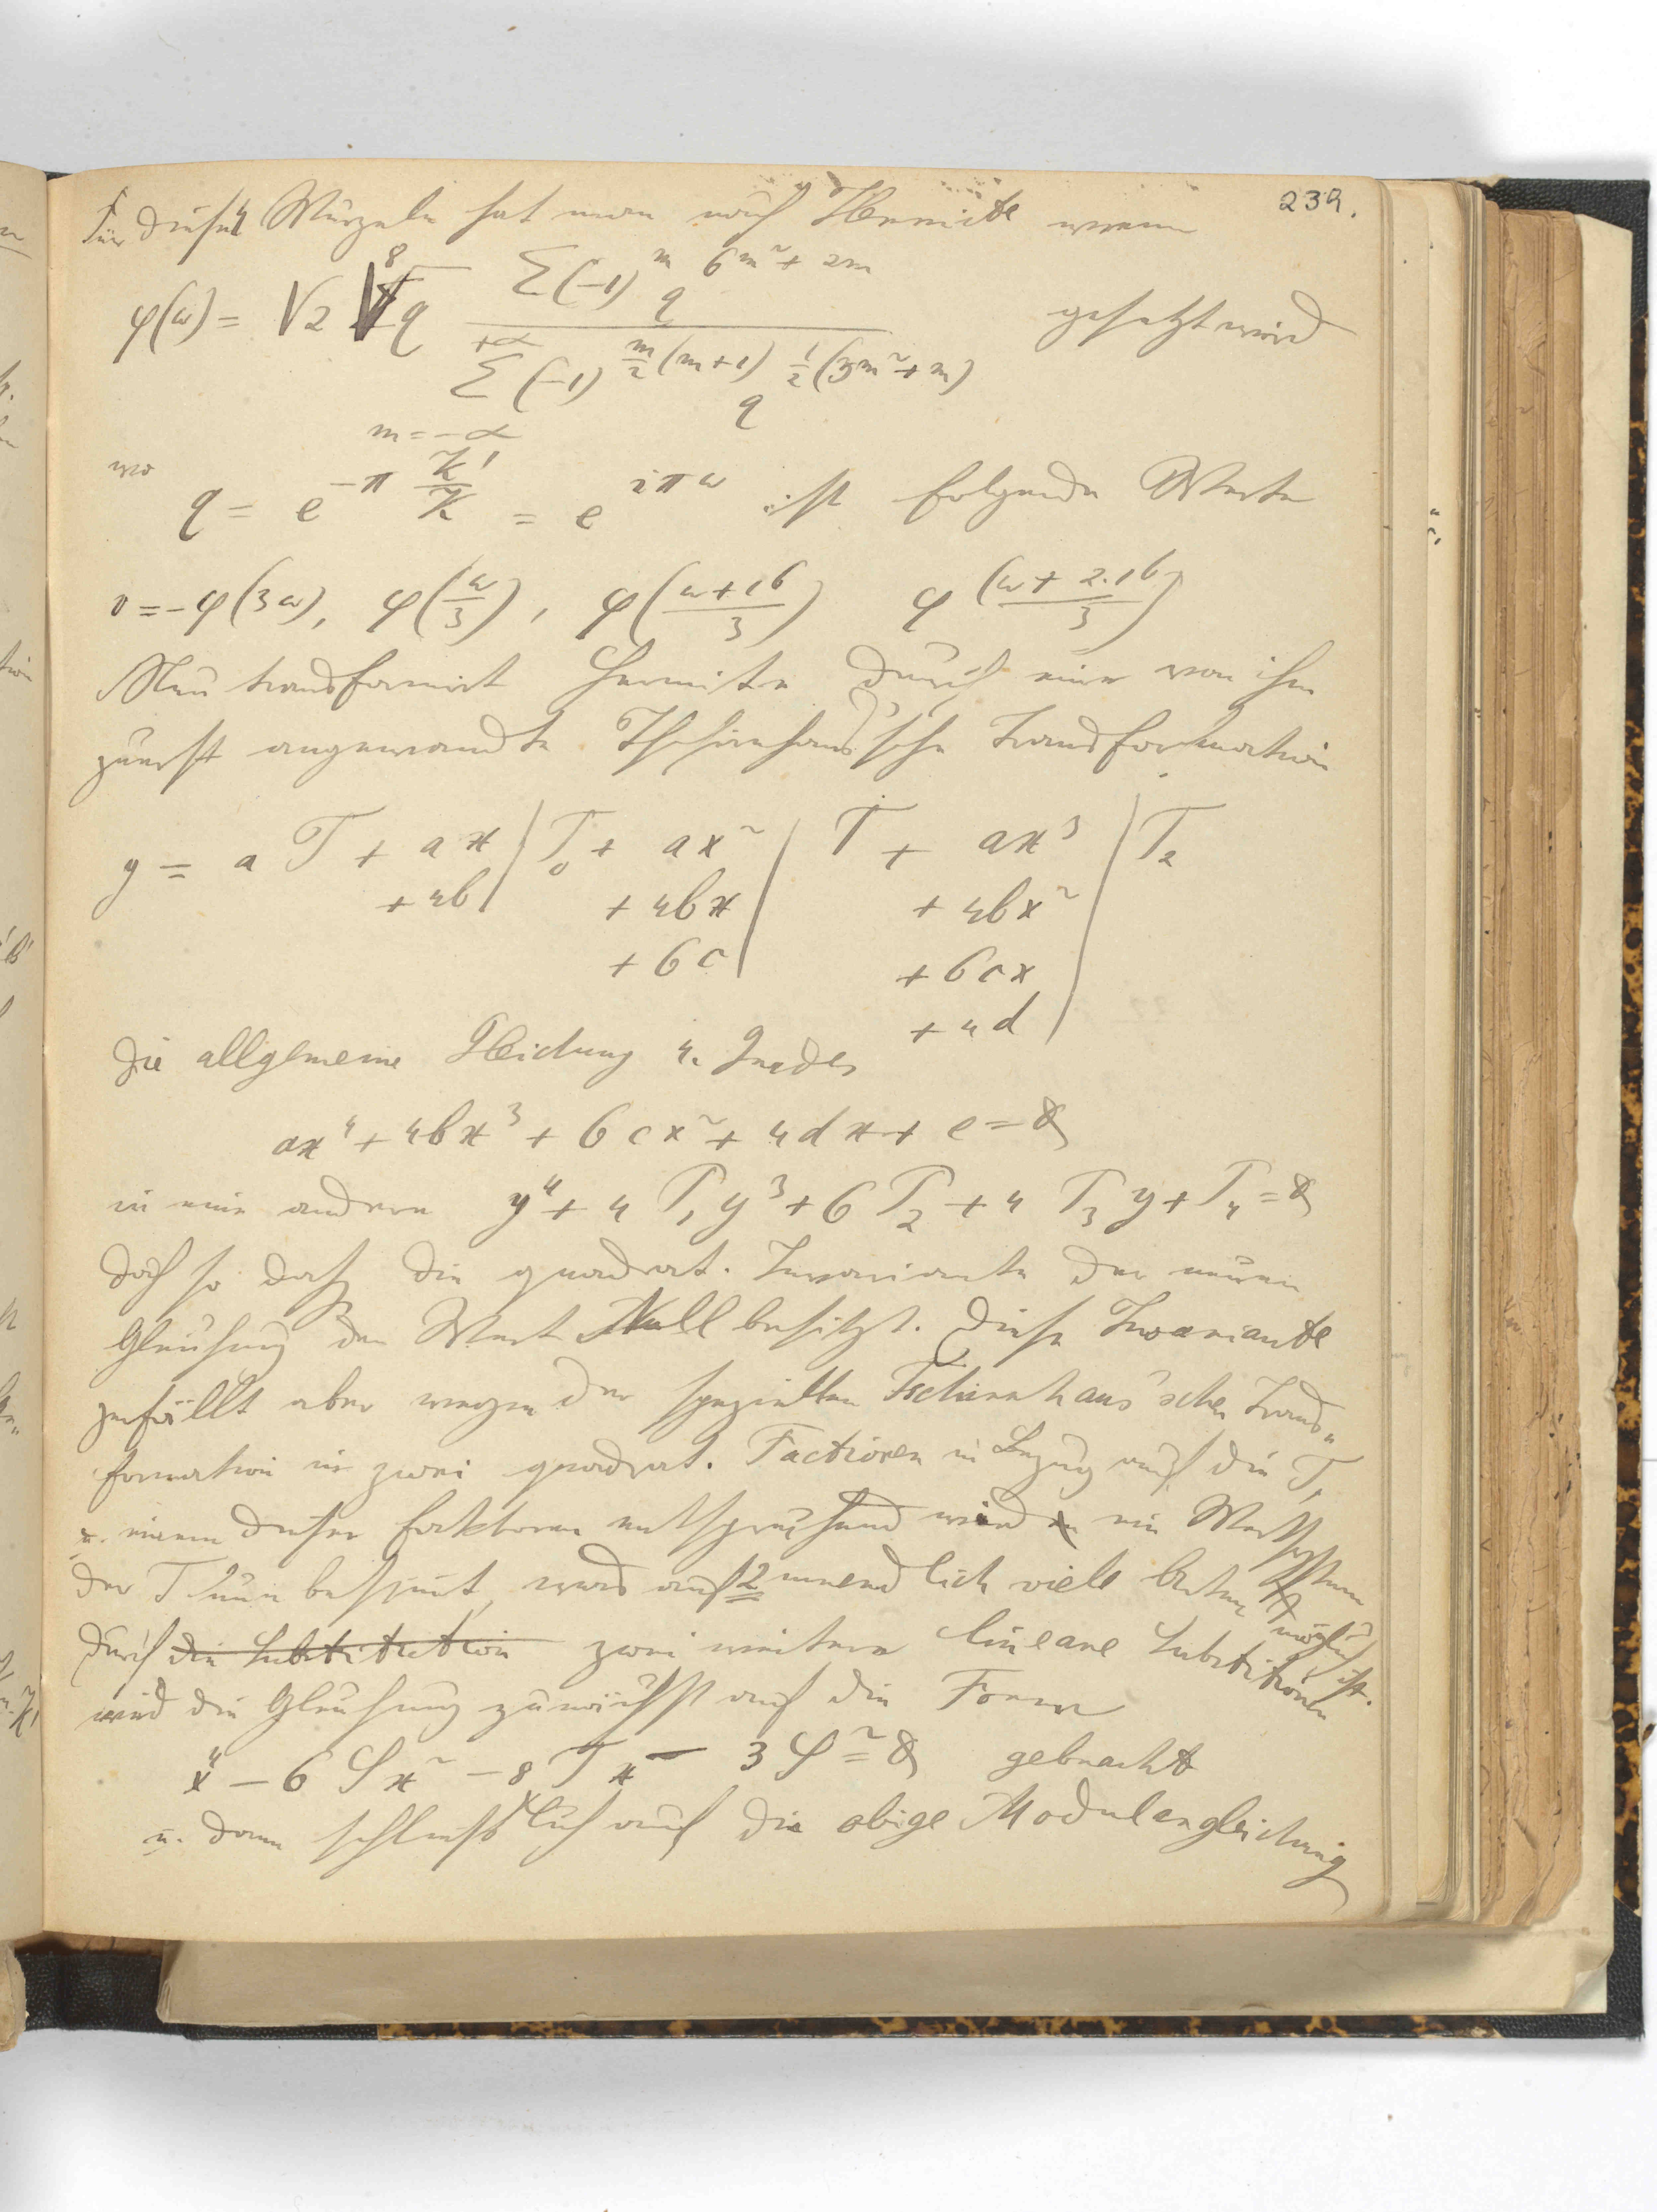 239.
Für diese 4 Wurzeln hat man nach Hermite wenn
φ(ω) = √2 ⁸√q Σ(-1)^m q^(6m²+2m) / Σ(-1)^(m/2(m+1)) q^(1/2(3m²+m)) gesetzt wird
+∞
m=-∞
wo q = e^(-π K'/K) = e^(iπω) ist folgende Werte
v = -φ(3ω), φ(ω/3), φ((ω+16)/3) φ((ω+2.16)/3)
Nun transformirt Hermite durch eine von ihm
zuerst angewandte Tschirnhaus'sche Transformation
y = aT + ax | T₀ + ax² | T + ax³ | T₂
+4b | +4bx | +4bx² |
+6c | +6cx |
+4d |
Die allgemeine Gleichung 4. Grades
ax⁴ + 4bx³ + 6cx² + 4dx + e = 0
in eine andere y⁴ + 4T₁y³ + 6T₂ + 4T₃y + T₄ = 0
doch so daß die quadrat. Invariante der neuen
Gleichung den Wert Null besitzt. Diese Invariante
zerfällt aber wegen der speziellen Tschirnhaus'schen Trans„
formation in zwei quadrat. Factoren in Bezug auf die T,
u. einem dieser Faktoren entsprechend wird ein Wertsystem
der T nun bestimt, was auf 2 unendlich viele Arten möglich ist.
Durch die Substitution zwei weitere lineare Substitutionen
wird die Gleichung zunächst auf die Form
x⁴ - 6Sx² - 8Tx - 3S² = 0 gebracht
u. dann schließlich auf die obige Modulargleichung